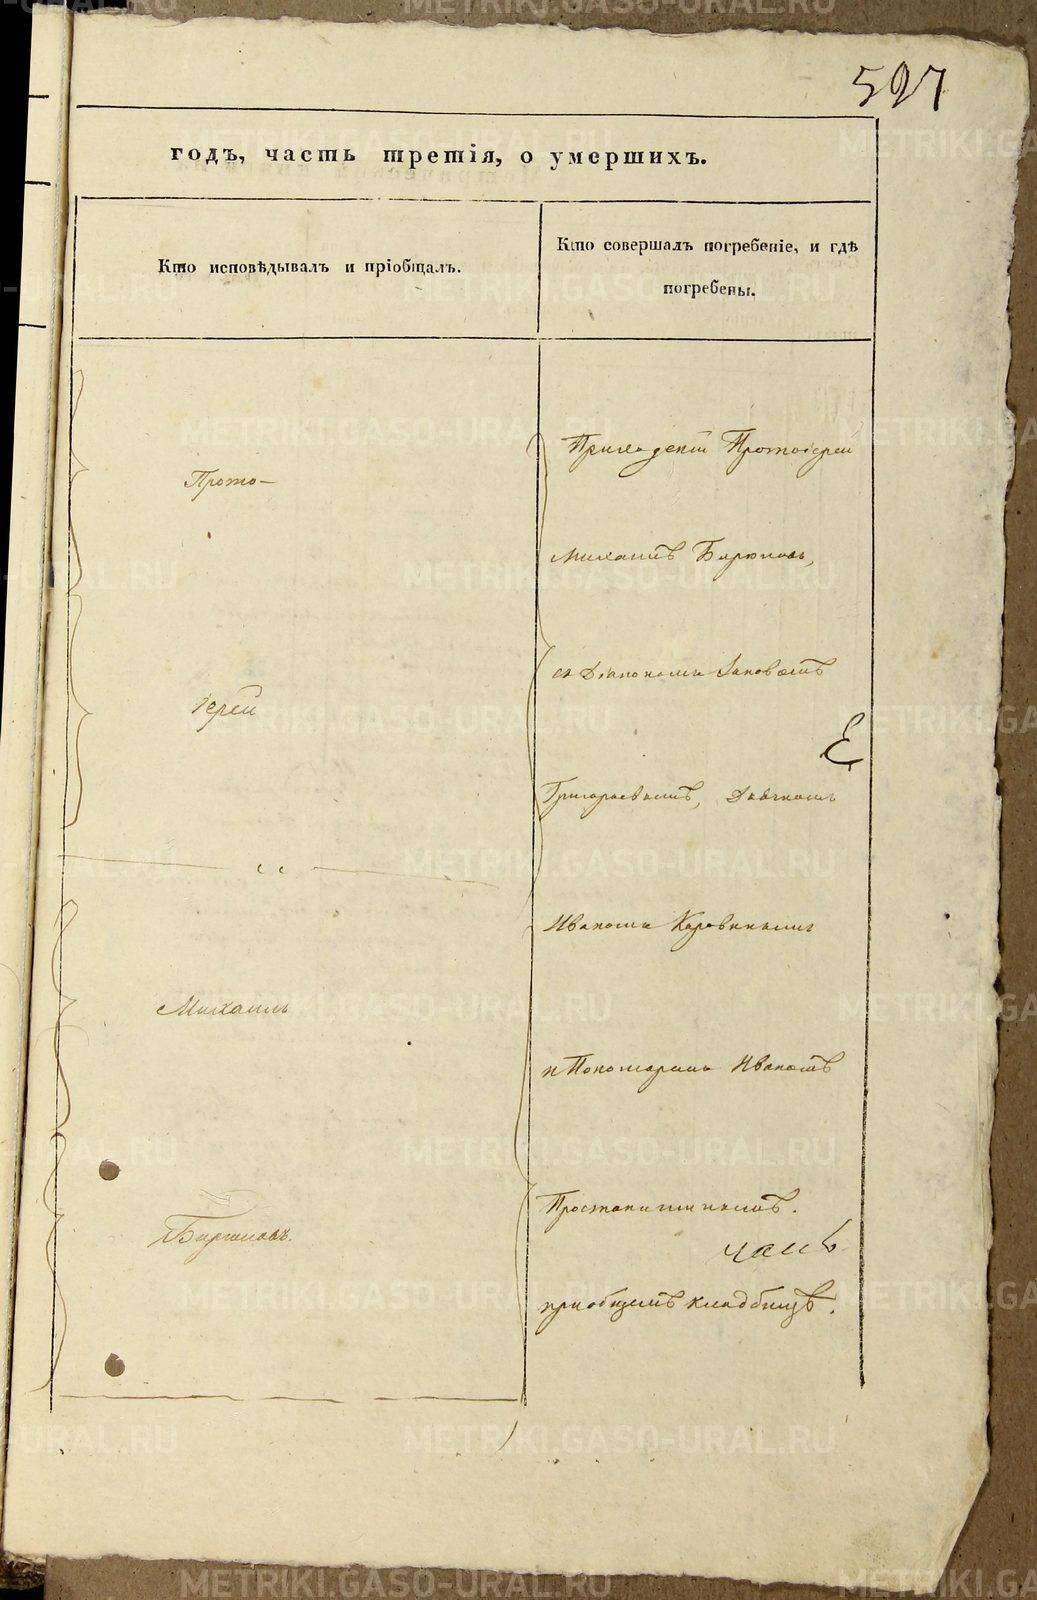 597
годъ, часть третія, о умершихъ.
Кто исповѣдывалъ и пріобщалъ.
Кто совершалъ погребеніе, и гдѣ
погребены.
Прото-
іерей
Михаилъ
Бирюковъ.
Протоіерей
Михаилъ Бирюковъ,
съ Діакономъ Іаковомъ
Е
Григорьевымъ, Дьячкомъ
Иваномъ Коровинымъ
и Пономаремъ Иваномъ
.
приобщемъ кладбищѣ.
METRIKI.GASO-URAL.RU